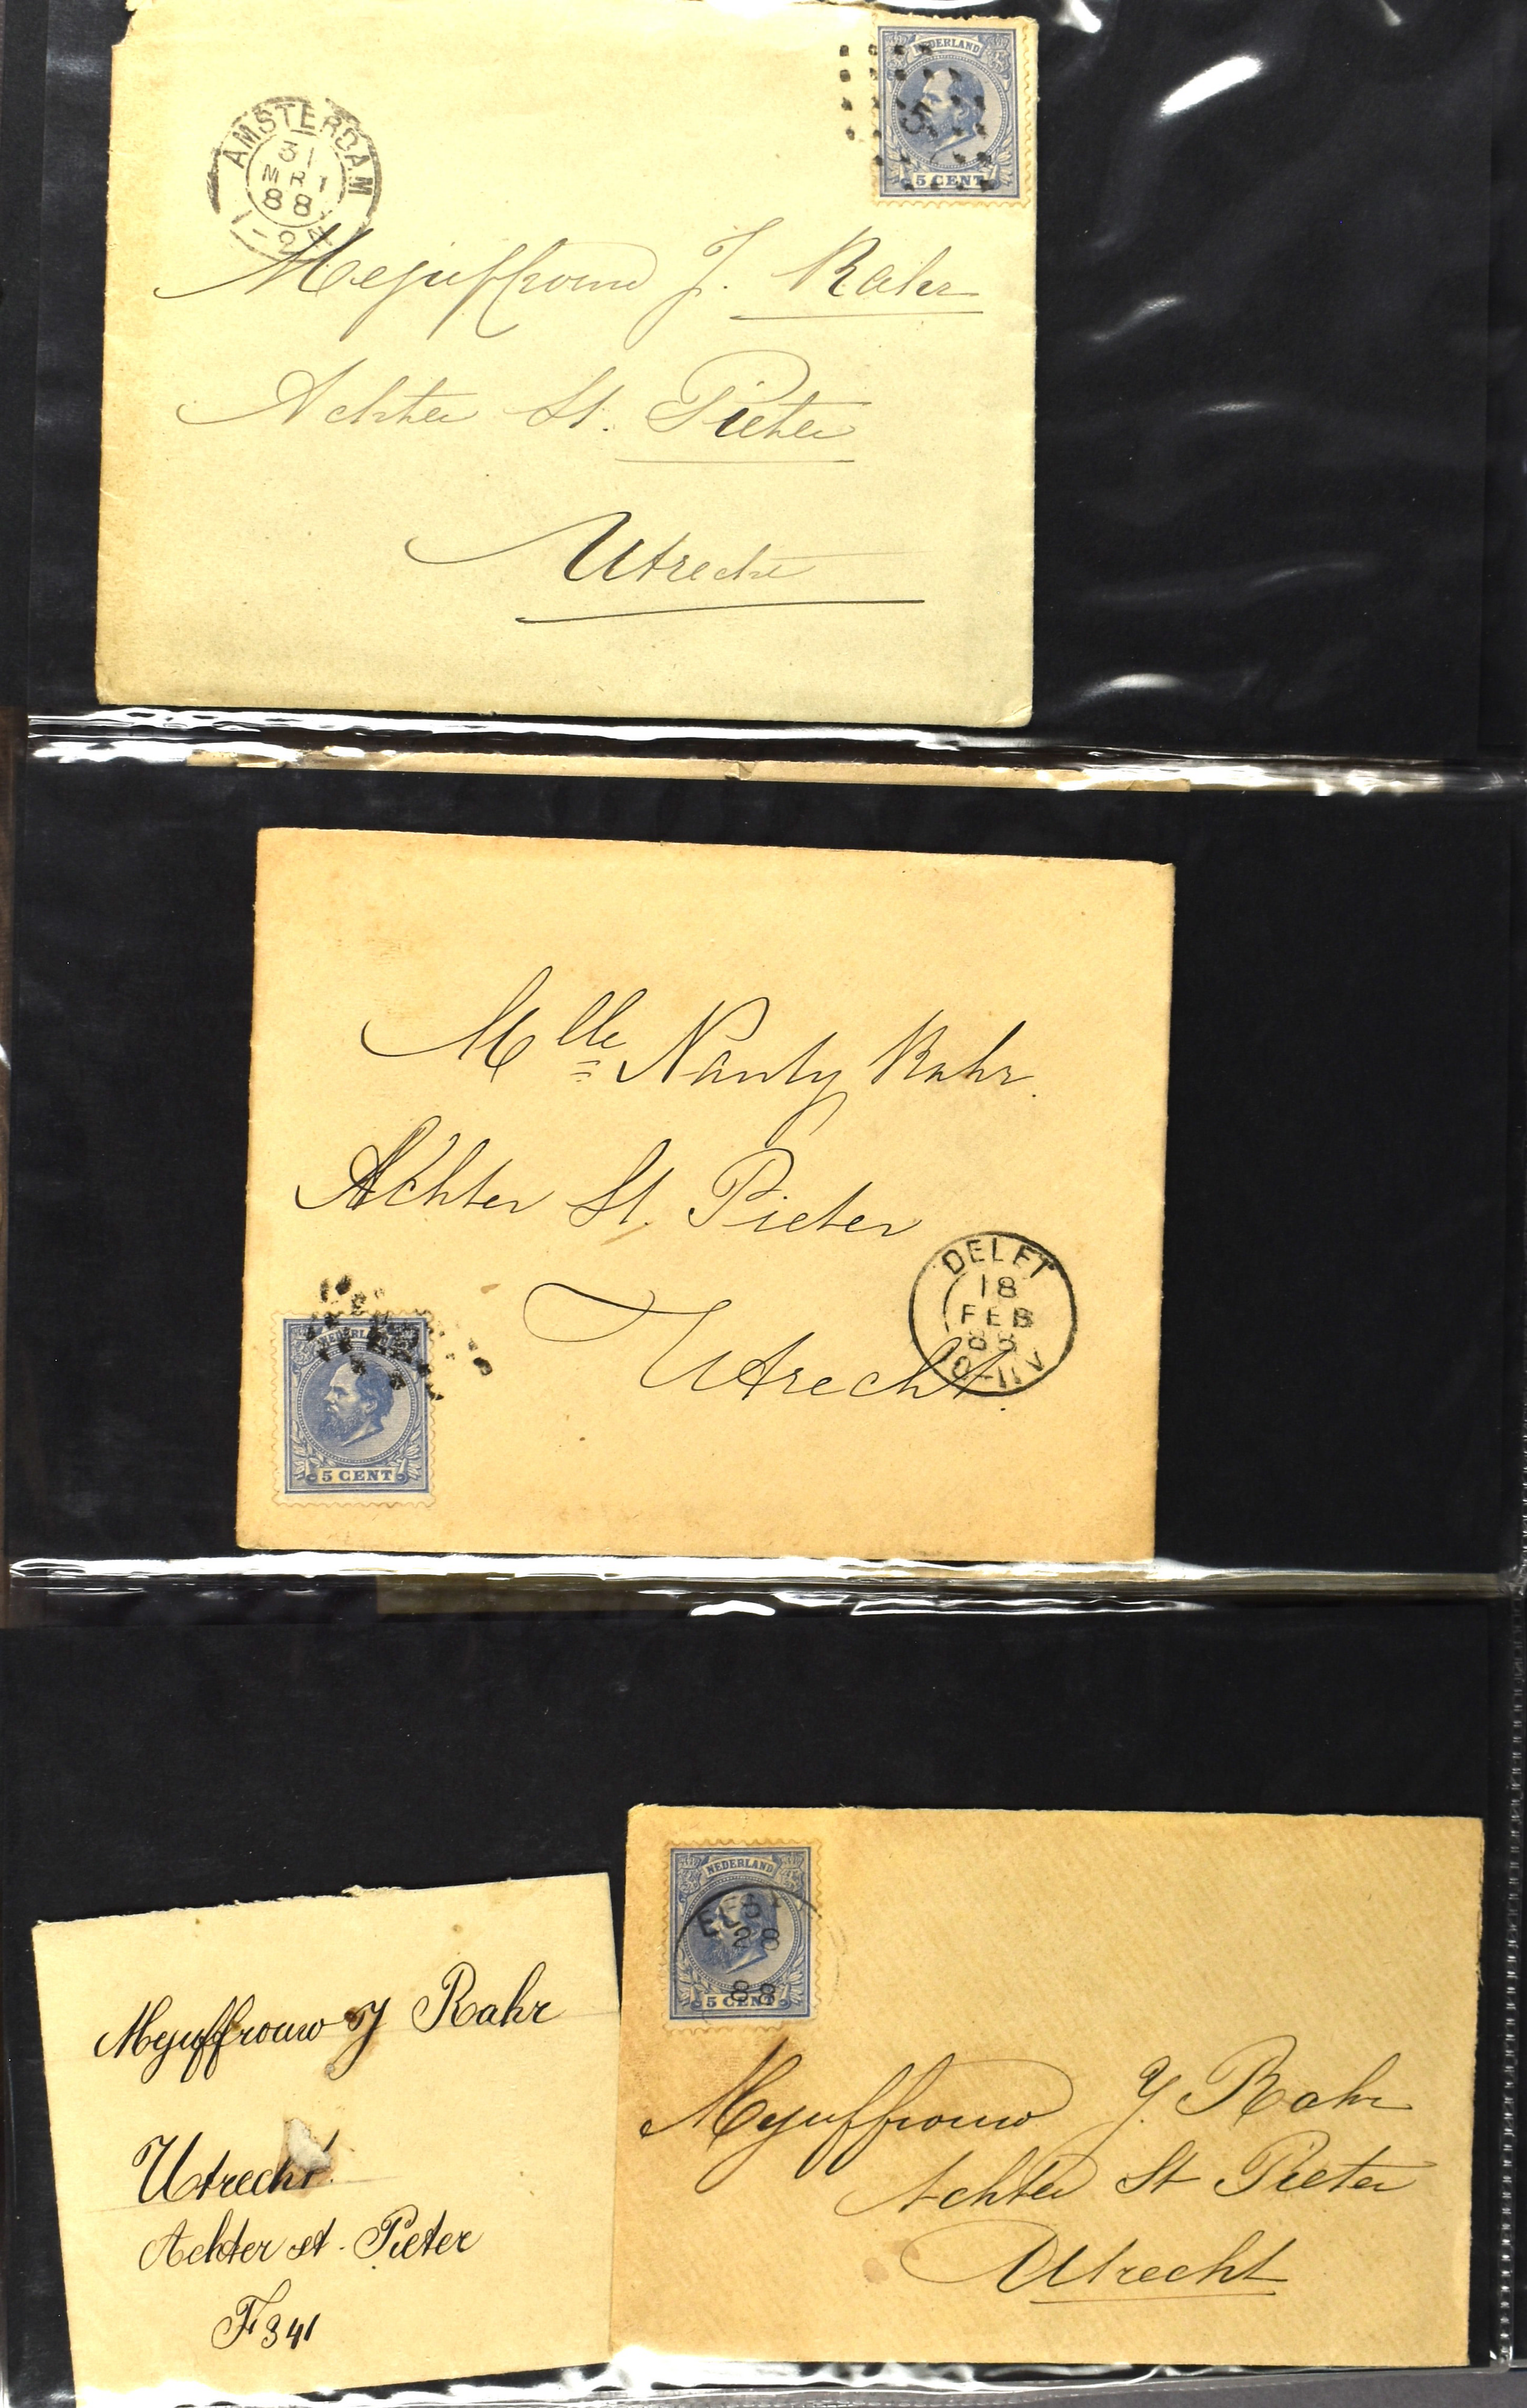 AMSTERDAM
MR
88
NEDERLAND
5
5 CENT
Mejuffrouw J. Rahr
Achter St. Pieter
Utrecht
Mlle Nanty Rahr.
Achter St. Pieter
Utrecht.
DELFT
18
FEB
88
NEDERLAND
5 CENT
Mejuffrouw J Rahr
Utrecht.
Achter st. Pieter
F 341
NEDERLAND
28
88
5 CENT
Mejuffrouw J. Rahr
Achter St Pieter
Utrecht